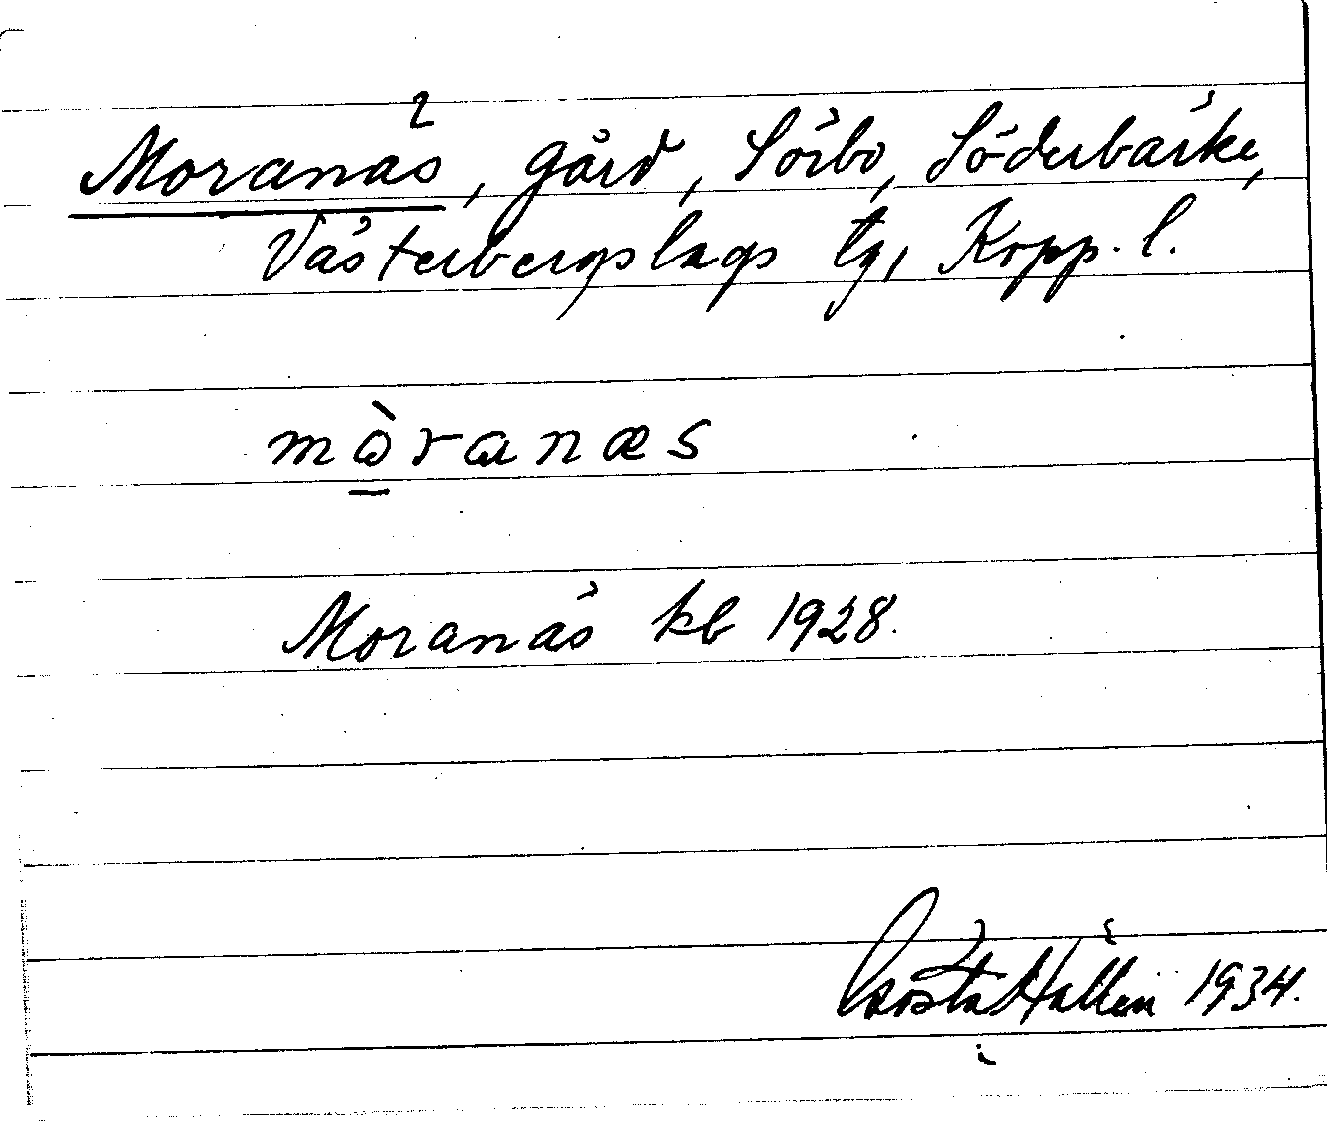 Moranäs, gård, Sörbo, Söderbärke,
Västerbergslags tg, Kopp. l.
mòranæs
Moranäs kb 1928.
Gösta Hallén 1934.